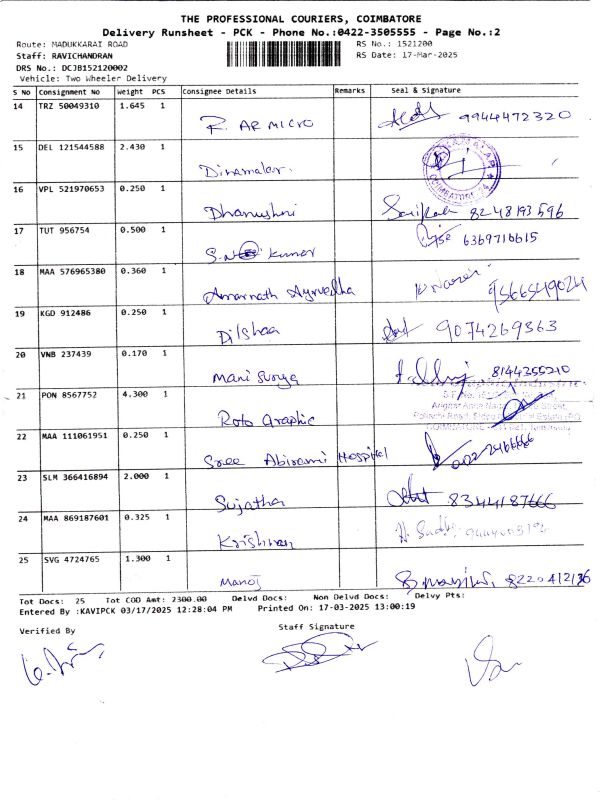 THE PROFESSIONAL COURIERS, COIMBATORE
Delivery Runsheet - PCK - Phone No.:0422-3505555 - Page No.:2
Route: MADUKKARAI ROAD RS No.: 1521200
Staff: RAVICHANDRAN RS Date: 17-Mar-2025
DRS No.: DCJB152120002
Vehicle: Two Wheeler Delivery
S No Consignment No Weight PCS Consignee Details Remarks Seal & Signature
14 TRZ 50049310 1.645 1 R. AR MICRO 9944472320
15 DEL 121544588 2.430 1 Dinamalar.
16 VPL 521970653 0.250 1 Dhanushri 8248193596
17 TUT 956754 0.500 1 kumar 6369710615
18 MAA 576965380 0.360 1 Amarnath Ayurvedha
19 KGD 912486 0.250 1 Dilshaa 9074269363
20 VNB 237439 0.170 1 Mani Surya 8144355210
21 PON 8567752 4.300 1 Roto Graphic
22 MAA 111061951 0.250 1 Sree Abirami Hospital
23 SLM 366416894 2.000 1 Sujatha 8344187666
24 MAA 869187601 0.325 1 Krishnan
25 SVG 4724765 1.300 1 Manoj
Tot Docs: 25 Tot COD Amt: 2300.00 Delvd Docs: Non Delvd Docs: Delvy Pts:
Entered By :KAVIPCK 03/17/2025 12:28:04 PM Printed On: 17-03-2025 13:00:19
Verified By Staff Signature